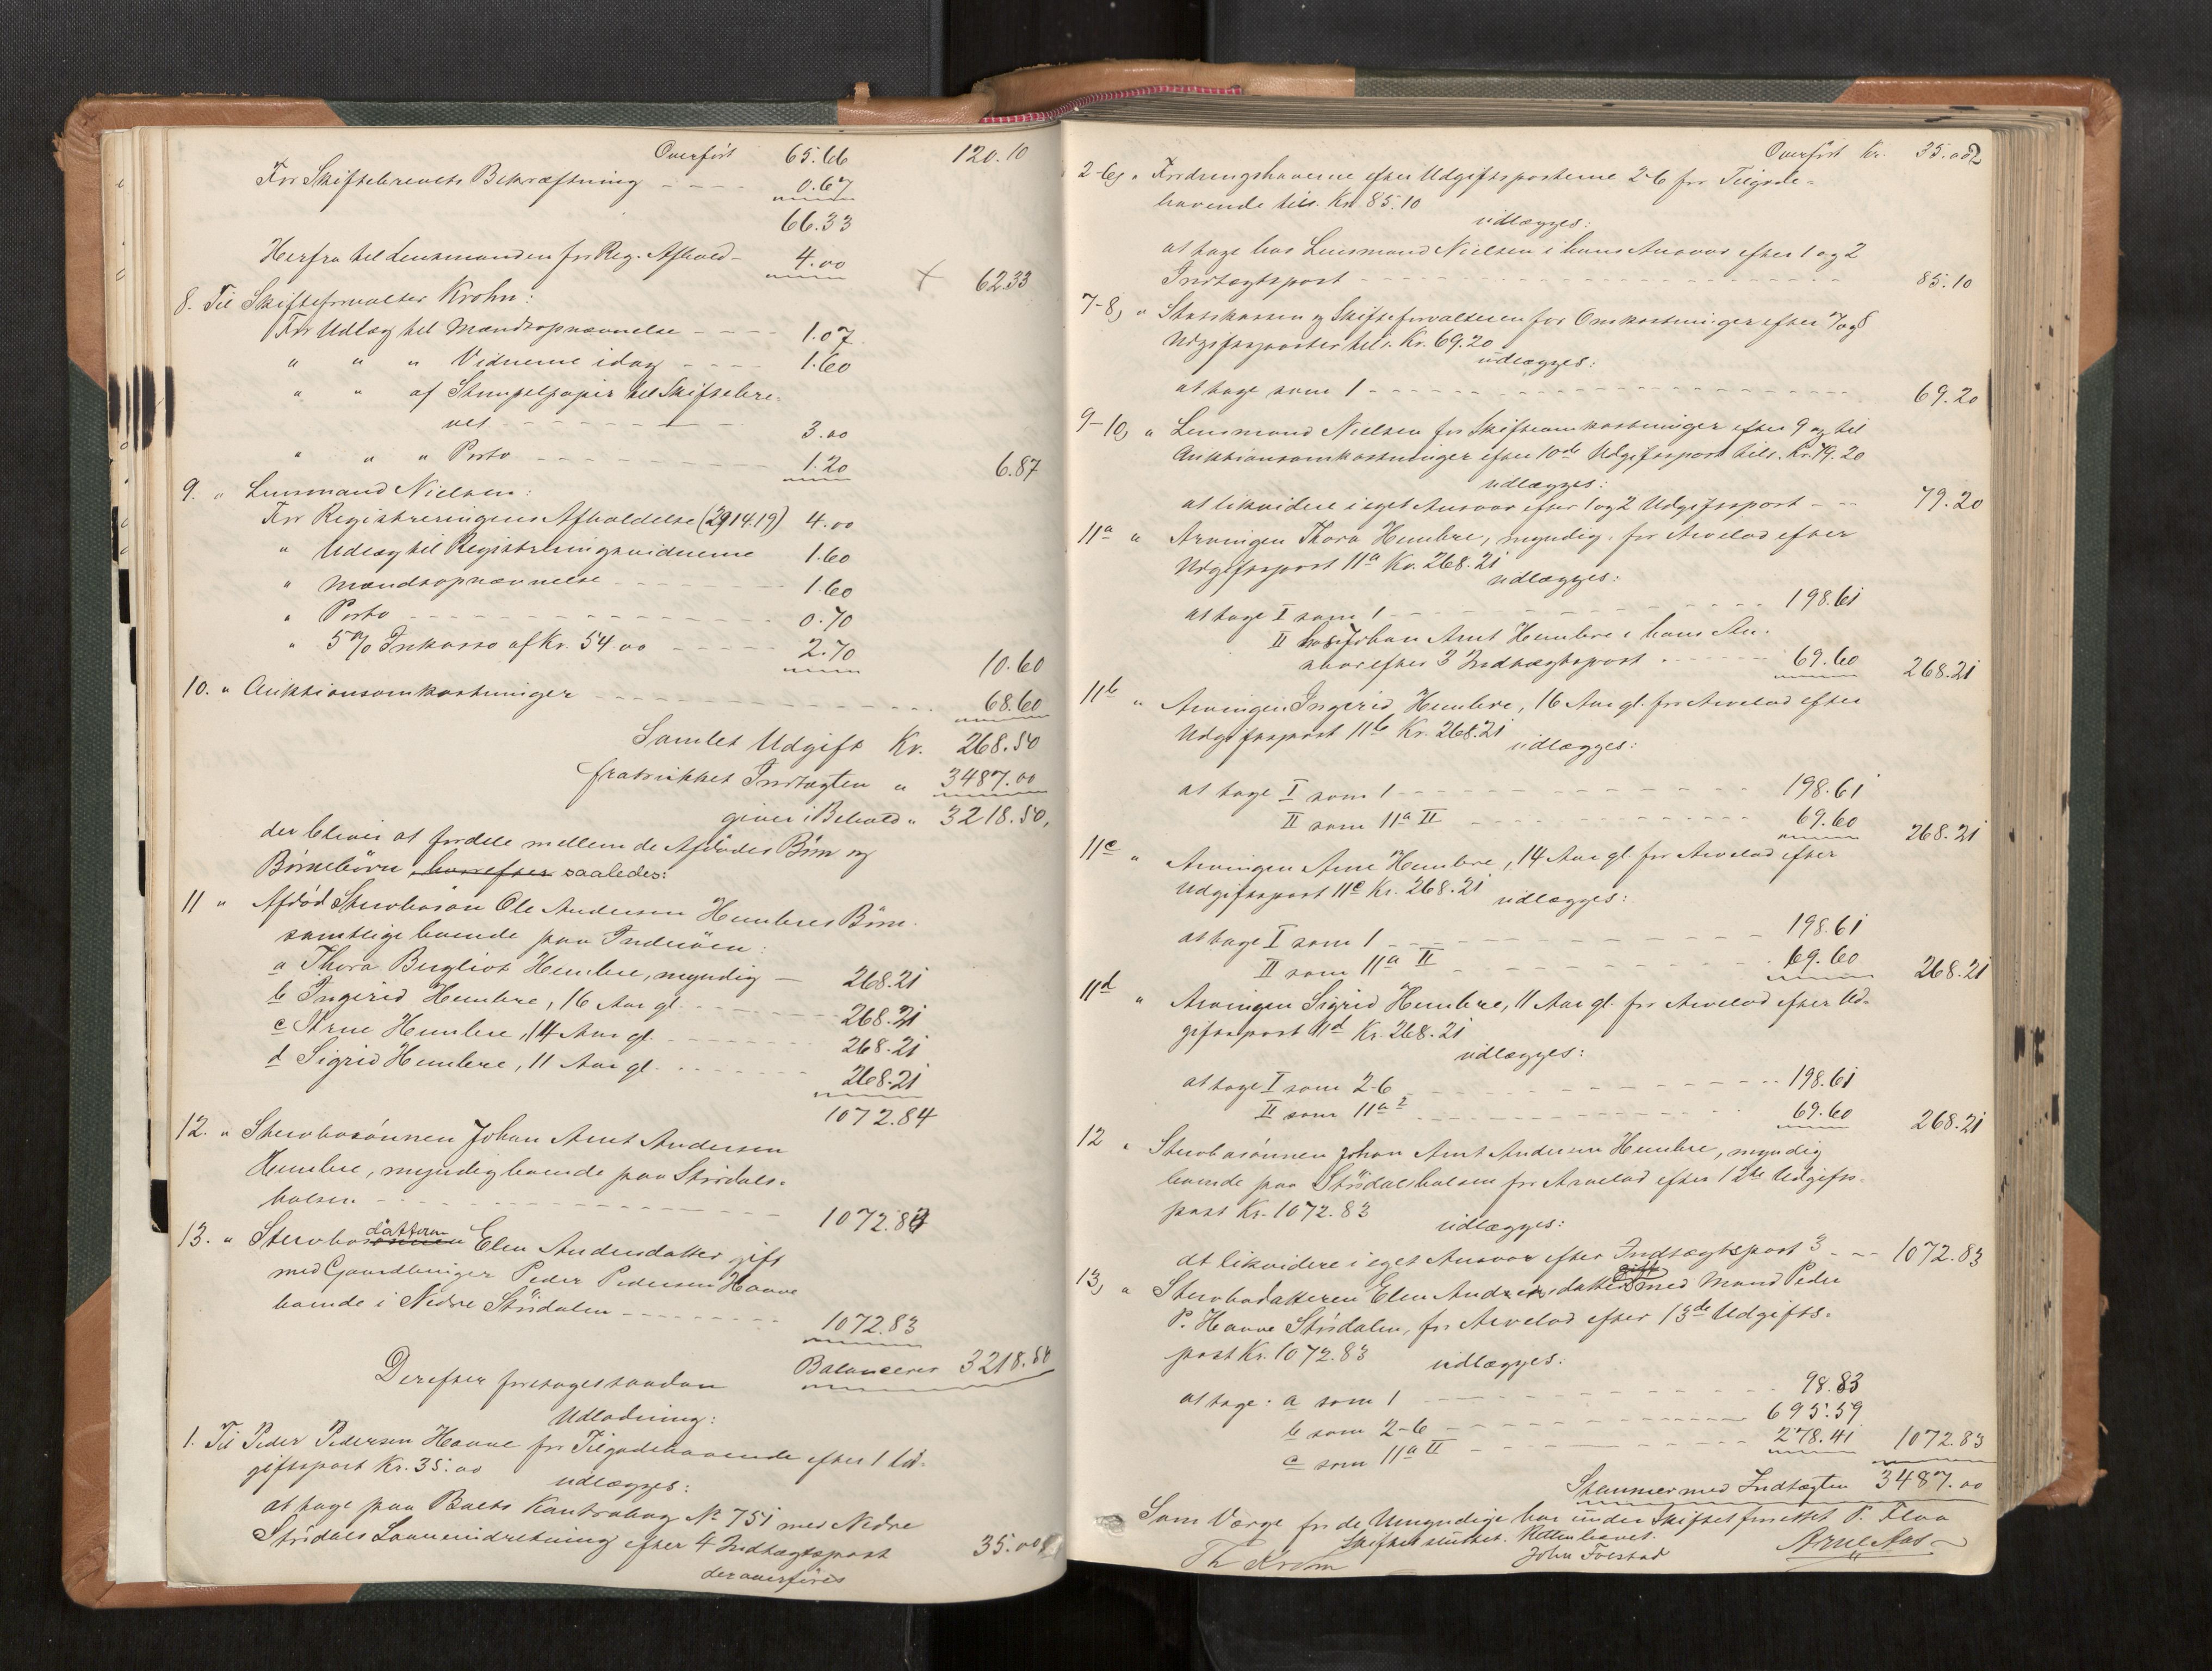 Overført 65.66 120.10
For Skiftebrevets Bekræftning - - - - 0.67
66.33
Herfra til Lensmanden for Reg. Afhold - 4.00 + 62.33
8. Til Skifteforvalter Krohn:
For Udlæg til Mændsopnævnelse - - - - 1.07
" " " Vidnerne idag - - - - 1.60
" " af Stempelpapir til Skiftebre-
vet - - - - - - 3.00
" " " Porto - - - - - - 1.20 6.87
9. " Lensmand Nielsen:
For Registreringens Afholdelse (29/14.19) 4.00
" Udlæg til Registreringsvidnerne 1.60
" Mændsopnævnelse - - - - - 1.60
" Porto - - - - - - - - 0.70
" 5% Inkasso af Kr. 54.00 - - - - - 2.70
10.60
10. " Auktionsomkostninger - - - - - - - - 68.60
Samlet Udgift Kr. 268.50
fratrukket Indtægten " 3487.00
giver i Behold " 3218.50,
der bliver at fordele mellem de Afdødes Børn og
Børnebørn herefter saaledes:
11 " Afdød Stervbosøn Ole Andersen Hembres Børn.
samtlige boende paa Inderøen:
a Thora Bergliot Hembre, myndig — 268.21
b Ingerid Hembre, 16 Aar gl. - - - - - - 268.21
c Arne Hembre, 14 Aar gl. - - - - - - 268.21
d Sigrid Hembre, 11 Aar gl. - - - - - - 268.21
1072.84
12. " Stervbosønnen Johan Arnt Andersen
Hembre, myndig boende paa Stjørdals-
halsen - - - - - - - - - 1072.83
13. " Stervbodatteren Elen Andersdatter gift
med Gaardbruger Peder Pedersen Haave
boende i Nedre Stjørdalen - - - - - - - 1072.83
Balancerer 3218.50
Derefter foretages saadan
Udlodning:
1. Til Peder Pedersen Haave for Tilgodehavende efter 1 Ud-
giftspost Kr. 35.00 udlægges:
at tage paa Boets Kontrabog No 751 med Nedre
Stjørdals Laaneindretning efter 4 Indtægtspost 35.00
der overføres
Overført Kr. 35.00
2-6, " Fordringshaverne efter Udgiftsposterne 2-6 for Tilgode-
havende tils. Kr. 85.10
udlægges:
at tage hos Lensmand Nielsen i hans Ansvar efter 1 og 2
Indtægtspost - - - - - - - - - - - - 85.10
7-8, " Statskassen og Skifteforvalteren for Omkostninger efter 7 og 8
Udgiftsposter tils. Kr. 69.20
udlægges:
at tage som 1 - - - - - - - - - - - - 69.20
9-10, " Lensmand Nielsen for Skifteomkostninger efter 9 og til
Auktionsomkostninger efter 10de Udgiftspost tils. Kr. 79.20
udlægges:
at likvidere i eget Ansvar efter 1 og 2 Udgiftspost - - - 79.20
11a " Arvingen Thora Hembre, myndig. for Arvelod efter
Udgiftspost 11a Kr. 268.21
udlægges:
at tage I som 1 - - - - - - - - - 198.61
II hos Johan Arnt Hembre i hans An-
svar efter 3 Indtægtspost - - - - - 69.60 268.21
11b " Arvingen Ingerid Hembre, 16 Aar gl. for Arvelod efter
Udgiftspost 11b Kr. 268.21
udlægges:
at tage I som 1 - - - - - - - - - 198.61
II som 11a II - - - - - - - - 69.60 268.21
11c " Arvingen Arne Hembre, 14 Aar gl. for Arvelod efter
Udgiftspost 11c Kr. 268.21 udlægges:
at tage I som 1 - - - - - - - - - 198.61
II som 11a II - - - - - - - - 69.60 268.21
11d " Arvingen Sigrid Hembre, 11 Aar gl. for Arvelod efter Ud-
giftspost 11d Kr. 268.21
udlægges:
at tage I som 2-6 - - - - - - - - 198.61
II som 11a 2 - - - - - - - - 69.60 268.21
12 " Stervbosønnen Johan Arnt Andersen Hembre, myndig
boende paa Stjørdalshalsen for Arvelod efter 12te Udgifts-
post Kr. 1072.83
udlægges:
at likvidere i eget Ansvar efter Indtægtspost 3 - - - 1072.83
13, " Stervbodatteren Elen Andersdatter gift med Mand Peder
P. Haave Stjørdalen, for Arvelod efter 13de Udgifts-
post Kr. 1072.83 udlægges:
at tage . a som 1 - - - - - - - - - 98.83
b som 2-6 - - - - - - - - 695.59
c som 11a II - - - - - - - - 278.41 1072.83
Stemmer med Indtægten 3487.00
Som Værge for de Umyndige har under Skiftet funkt. P. Floa
Skiftet sluttet. Retten hævet.
Th Krohn John Forstad Arne Aas